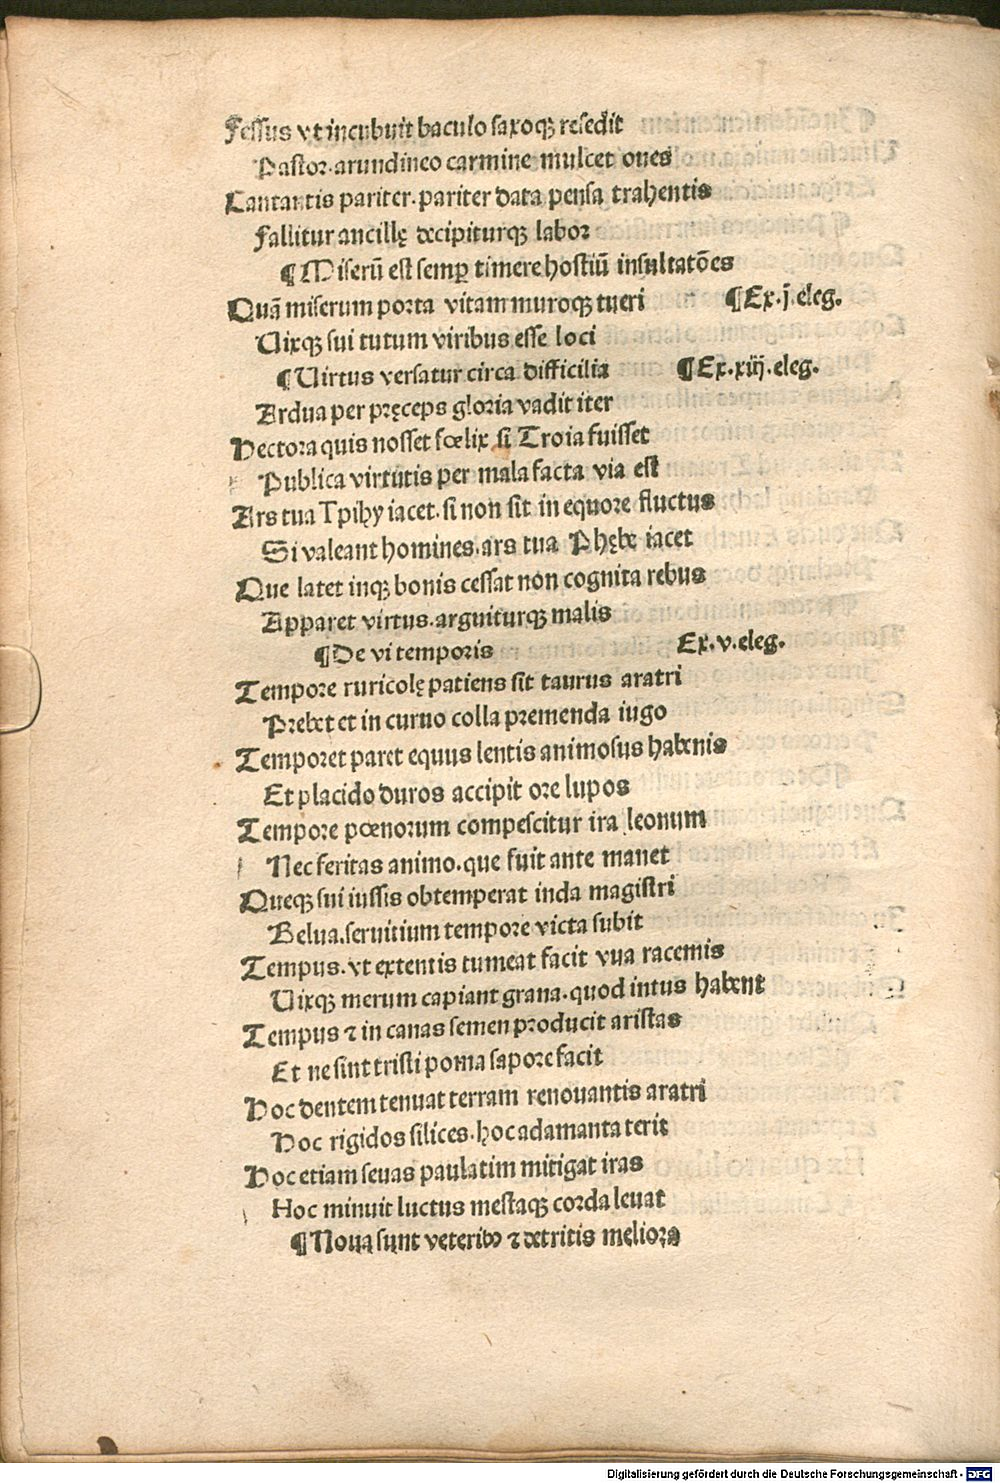 Fessus vt incubuit baculo saxoqꝫ resedit
Pastor. arundineo carmine mulcet oues
Cantantis pariter. pariter data pensa trahentis
Fallitur ancillę decipiturqꝫ labor
¶ Miserū est semꝑ timere hostiū insultatōes
Quā miserum porta vitam muroqꝫ tueri ¶ Ex. j. eleg.
Uixqꝫ sui tutum viribus esse loci
¶ Uirtus versatur circa difficilia ¶ Ex. xiij. eleg.
Ardua per pręceps gloria vadit iter
Hectora quis nosset fœlix si Troia fuisset
Publica virtutis per mala facta via est
Ars tua Tpihy iacet. si non sit in equore fluctus
Si valeant homines. ars tua Phębe iacet
Que latet inqꝫ bonis cessat non cognita rebus
Apparet virtus. arguiturqꝫ malis
¶ De vi temporis Ex. v. eleg.
Tempore ruricolę patiens sit taurus aratri
Prebet et in curuo colla premenda iugo
Temporet paret equus lentis animosus habenis
Et placido duros accipit ore lupos
Tempore pœnorum compescitur ira leonum
Nec feritas animo. que fuit ante manet
Queqꝫ sui iussis obtemperat inda magistri
Belua. seruitium tempore victa subit
Tempus. vt extentis tumeat facit vua racemis
Uixqꝫ merum capiant grana. quod intus habent
Tempus ⁊ in canas semen producit aristas
Et ne sint tristi poma sapore facit
Hoc dentem tenuat terram renouantis aratri
Hoc rigidos silices. hoc adamanta terit
Hoc etiam seuas paulatim mitigat iras
Hoc minuit luctus mestaqꝫ corda leuat
¶ Noua sunt veteribꝰ ⁊ detritis meliora
Digitalisierung gefördert durch die Deutsche Forschungsgemeinschaft - DFG